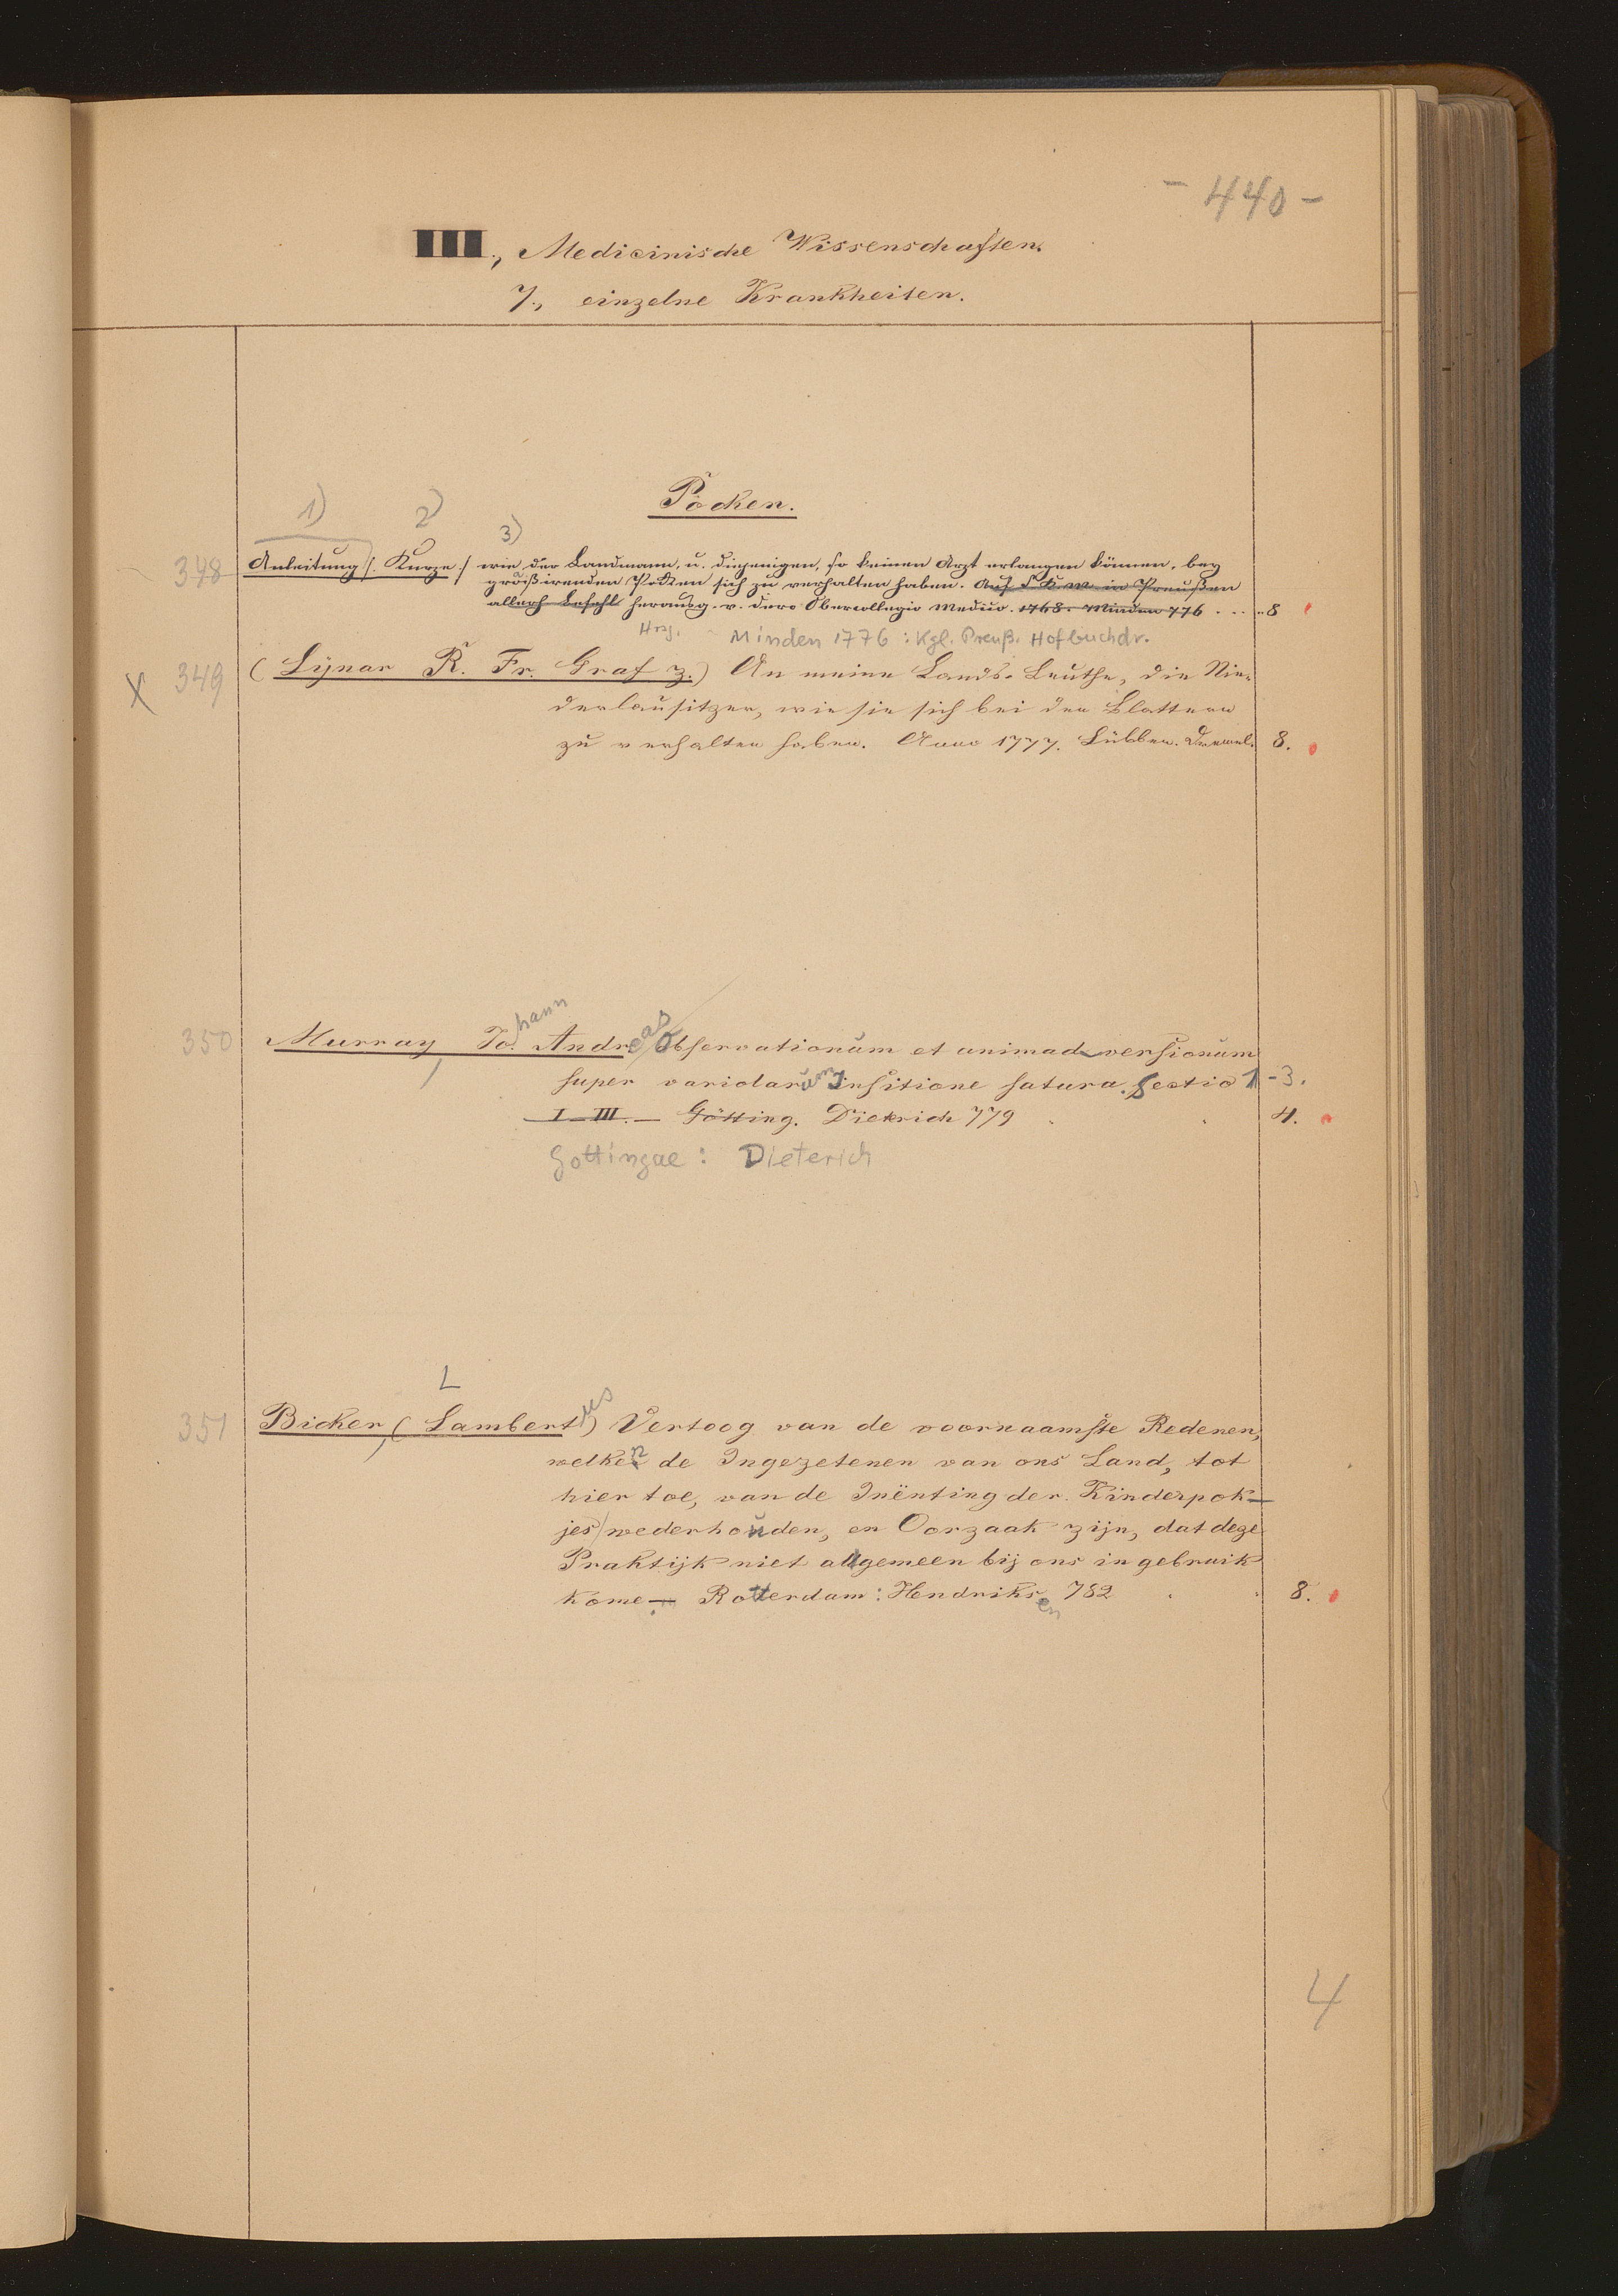 - 440 -
III., Medicinische Wissenschaften.
7., einzelne Krankheiten.
Pocken.
1) 2) 3)
348 Anleitung /. Kurze ./ wie der Landmann, u. diejenigen, so keinen Arzt erlangen können, bey
graßirenden Pocken sich zu verhalten haben. Auf S. K. M. in Preußen
allerh Befehl herausg. v. dero Obercollegio Medico. 1768. Minden 776 . . . . 8
Hrsg. Minden 1776 : Kgl. Preuß. Hofbuchdr.
X 349 (Lynar R. Fr. Graf z.) An meine Lands-Leuthe, die Nie-
derlausitzer, wie sie sich bei den Blattern
zu verhalten haben. Anno 1777. Lübben. 8.
350 Murray, Johann Andreas Observationum et animadversionum
super variolarum Insitione satura. Sectio 1-3.
I-III. — Götting. Dietrich 779 4.
Gottingae : Dieterich
L
351 Bicker, (Lambertus) Vertoog van de voornaamste Redenen,
welken de Ingezetenen van ons Land, tot
hier toe, van de Inënting der Kinderpok-
jes wederhouden, en Oorzaak zijn, dat deze
Praktijk niet algemeen bij ons in gebruik
kome — Rotterdam : Hendriksen 782 8.
4